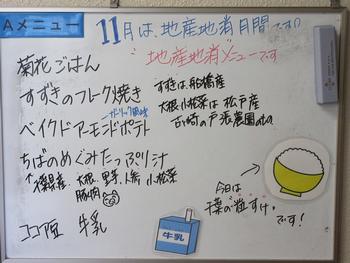 Aメニュー
11月は、地産地消月間です!!
地産地消メニューです
菊花ごはん
すずきのフレーク焼き
すずきは、船橋産
大根・小松菜は 松戸産
ガーリック風味
ベイクドアーモンドポテト
ちばのめぐみたっぷり汁
県産、大根、里芋、人参、小松菜
豚肉
ココア
牛乳
牛乳
今日は
千葉の粒すけ。
です!